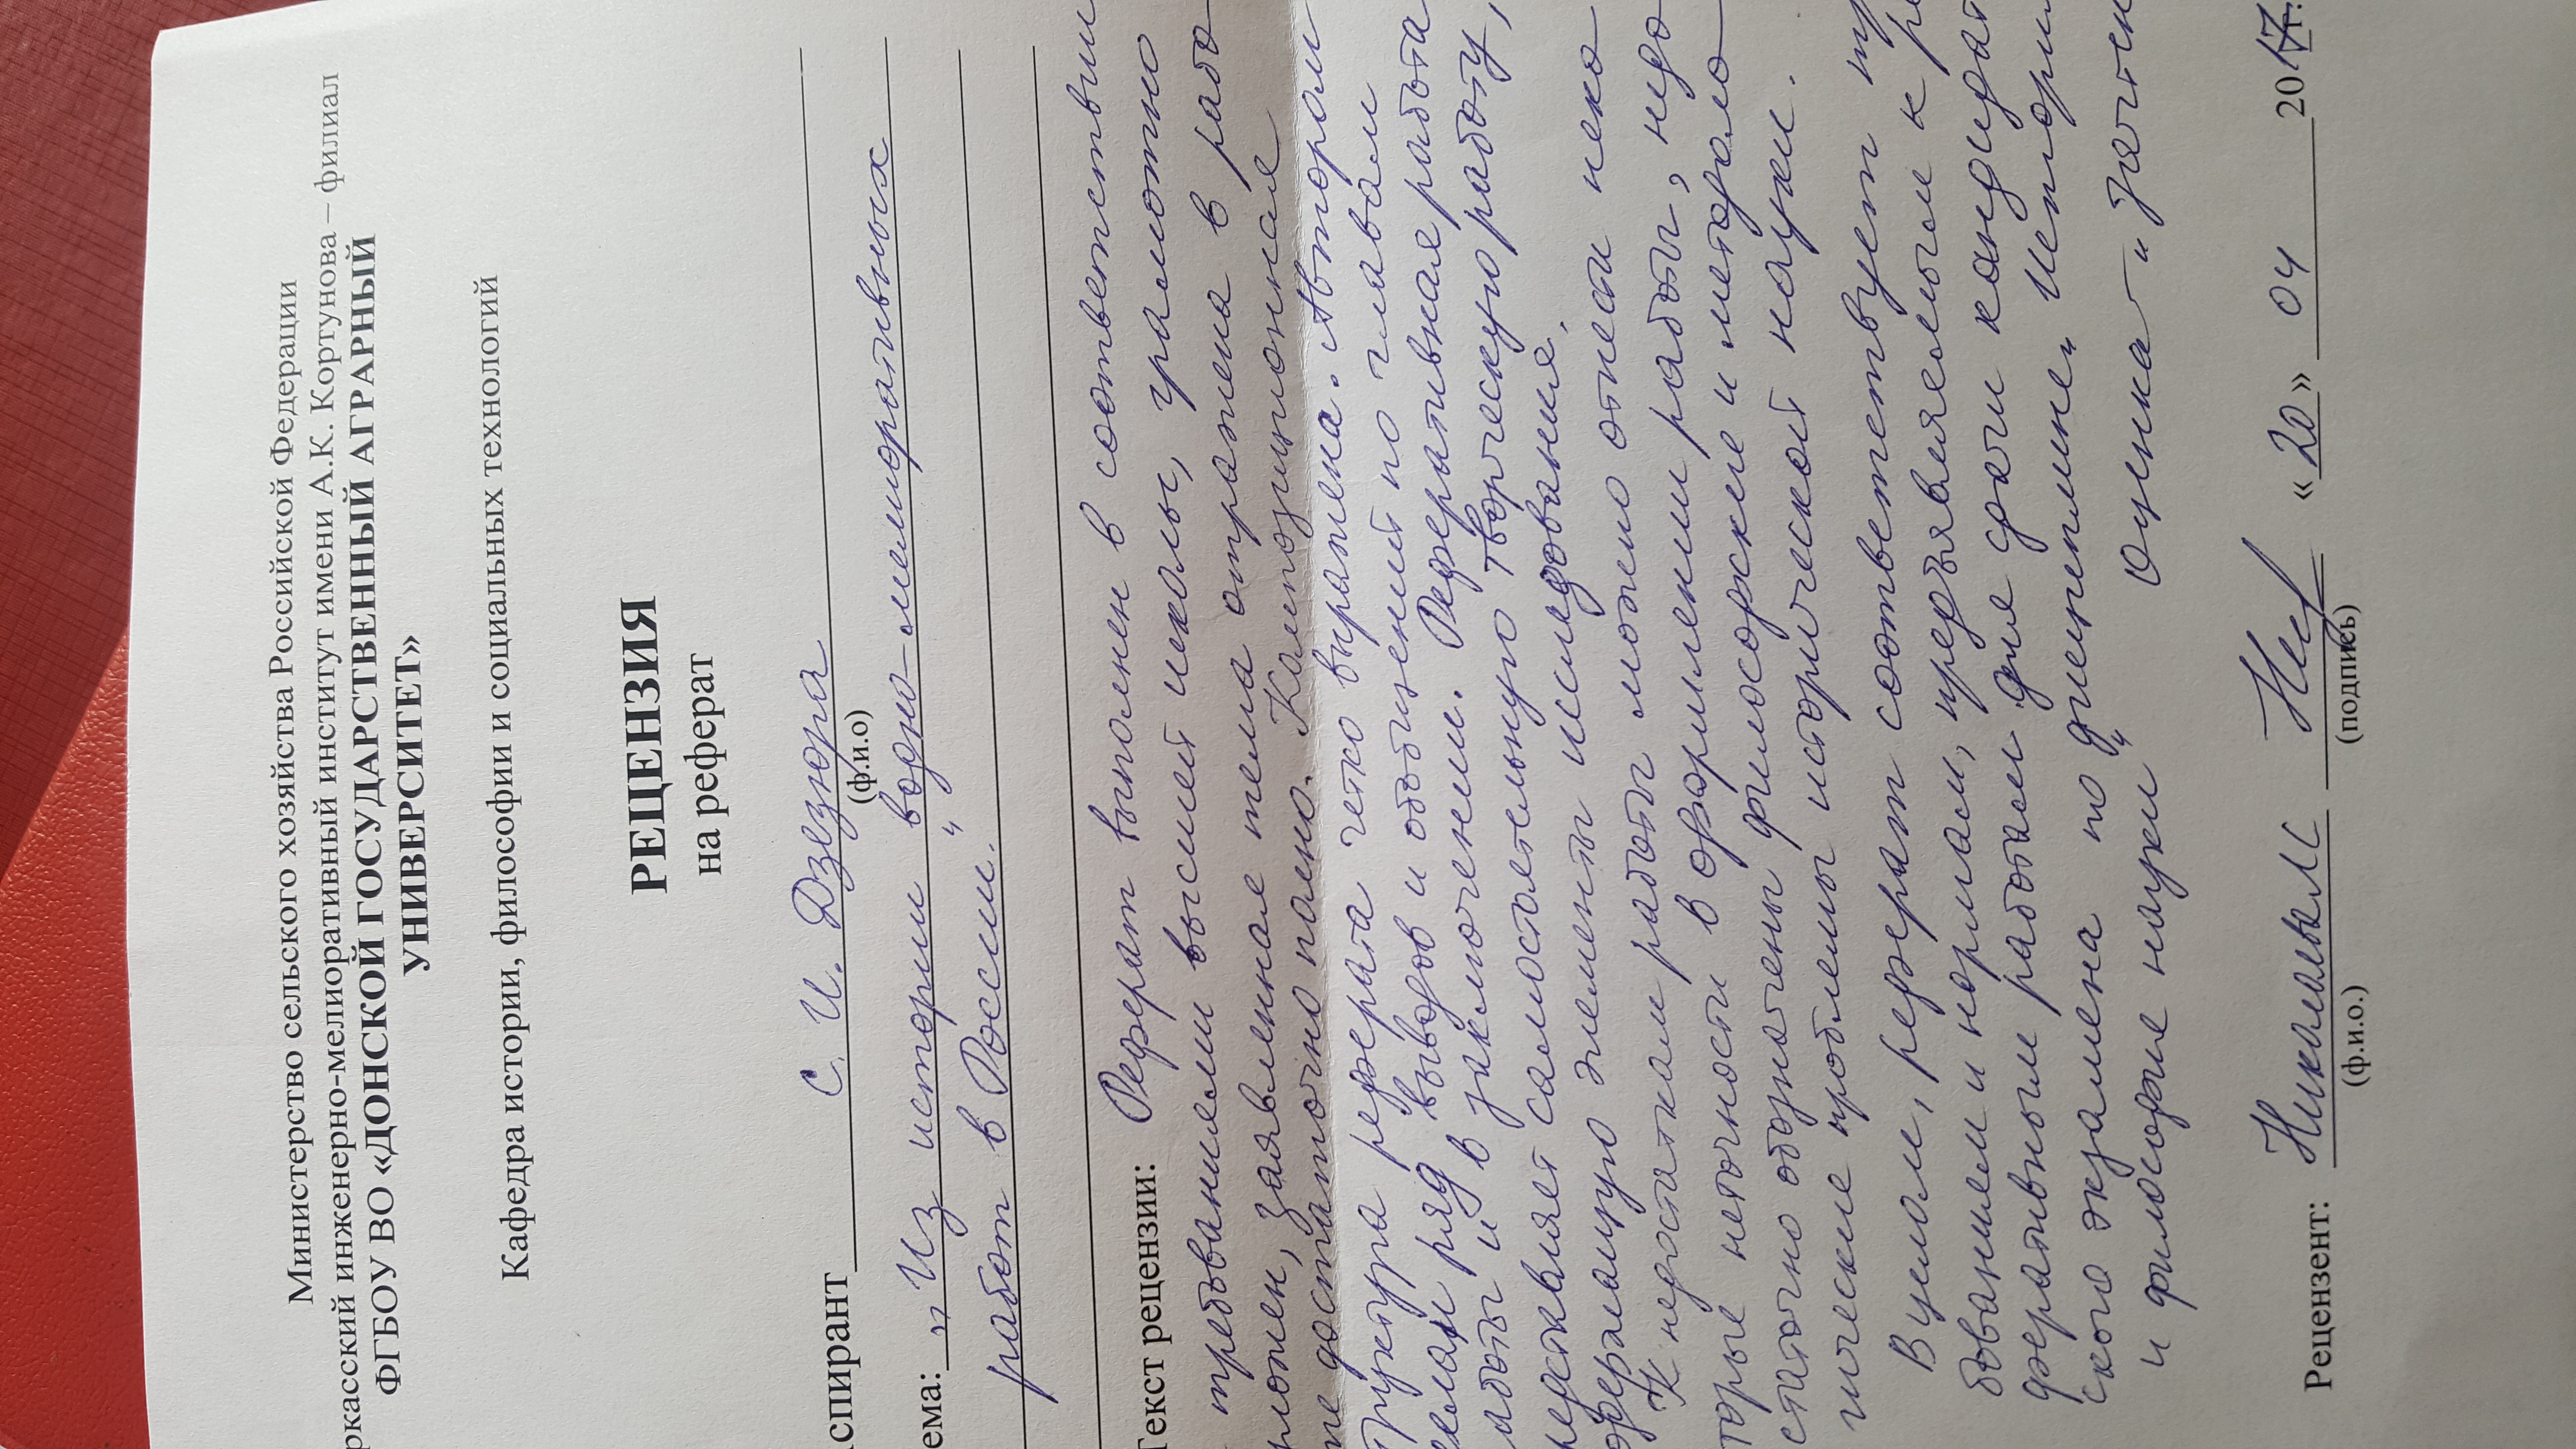 Министерство сельского хозяйства Российской Федерации
ркасский инженерно-мелиоративный институт имени А.К. Кортунова – филиал
ФГБОУ ВО «ДОНСКОЙ ГОСУДАРСТВЕННЫЙ АГРАРНЫЙ
УНИВЕРСИТЕТ»
Кафедра истории, философии и социальных технологий
РЕЦЕНЗИЯ
на реферат
спирант С. И. Дзезюра
(ф.и.о)
ема: „Из истории водно-мелиоративных
работ в России."
Текст рецензии: Реферат выполнен в соответствии
требованиями высшей школы, грамотно
рмлен, заявленная тема отражена в рабо
те достаточно полно. Композиционная
труктура реферата четко выражена. Автором
елан ряд выводов и обобщений по главам
аботы и в заключении. Реферативная работа
редставляет самостоятельную творческую работу,
одержащую элементы исследования.
К недостаткам работы можно отнести неко
торые неточности в оформлении работы, недо
статочно обозначены философские и методоло
гические проблемы исторической науки.
В целом, реферат соответствует тр
бованиям и нормам, предъявляемым к ре
феративным работам для сдачи кандидат
ского экзамена по дисциплине „История
и философия науки" Оценка – „зачтен
Рецензент: Николаева Л С «20» 04 2017г.
(ф.и.о.) (подпись)